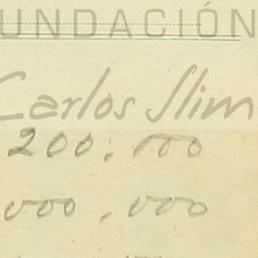 UNDACIÓN
Carlos Slim
200.000
000.000